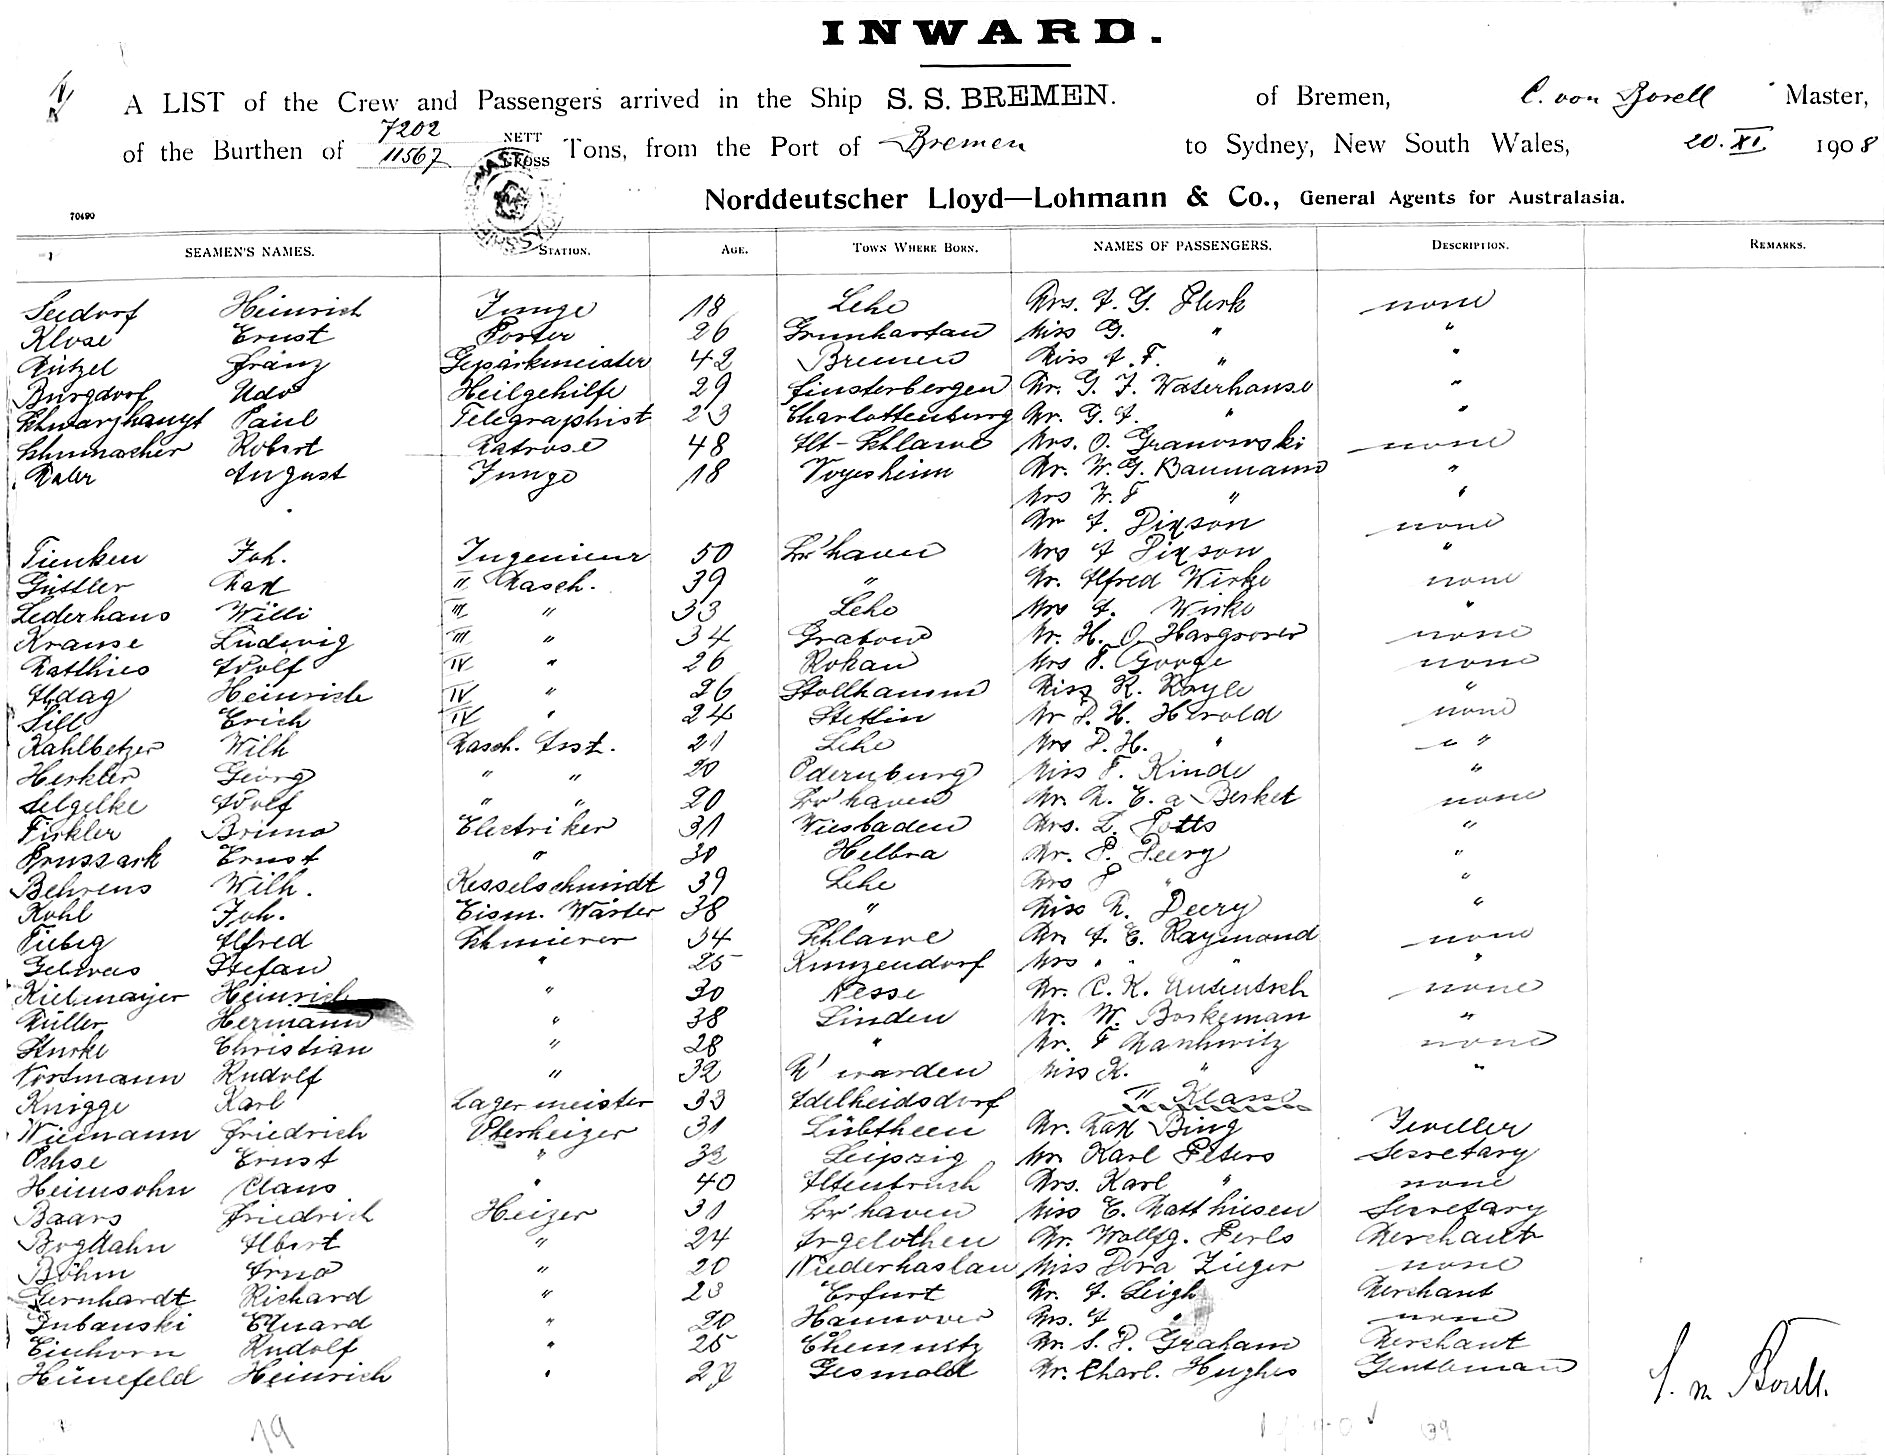 INWARD.
A LIST of the Crew and Passengers arrived in the Ship S. S. BREMEN. of Bremen, C. von Borell Master,
7202 NETT
of the Burthen of 11567 Gross Tons, from the Port of Bremen to Sydney, New South Wales, 20. XI. 1908
Norddeutscher Lloyd—Lohmann & Co., General Agents for Australasia.
70490
SEAMEN'S NAMES. STATION. AGE. TOWN WHERE BORN. NAMES OF PASSENGERS. DESCRIPTION. REMARKS.
Seedorf Heinrich Junge 18 Lehe Mrs. A. G. none
Klose Ernst Porter 26 Miss G. "
Franz Gepäckmeister 42 Bremen Miss A. F. " "
Burgdorf Udo Heilgehilfe 29 Finsterbergen Mr. G. F. Waterhouse "
Schwarzhaupt Paul Telegraphist 23 Charlottenburg Mr. G. A. " "
Schumacher Robert Matrose 48 Alt-Schlawe Mrs. O. Granowski none
Maler August Junge 18 Mr. W. G. Baumann "
Mrs W. F " "
Mr A. Dixson none
Tienken Joh. Ingenieur 50 Br'haven Mrs A Dixson "
Güttler Max II Masch. 39 " Mr. Alfred Wirke none
Lederhaus Willi III " 33 Lehe Mrs A. Wirke "
Krause Ludwig III " 34 Grabow Mr. H. O. Hargrover none
Matthies Adolf IV " 26 Rohan Mrs none
Ahdag Heinrich IV " 26 Stollhamm Miss K. Royle "
Sill Erich IV " 24 Stettin Mr P. H. Herold none
Kahlbetzer Wilh Masch. Asst. 21 Lehe Mrs P. H. " " "
Herkler Georg " " 20 Miss F. Kinde "
Selgelke Adolf " " 20 Br'haven Mr. none
Bruno Electriker 31 Wiesbaden Mrs. L. Potts "
Prussark Ernst " 30 Helbra Mr. P. Deery "
Behrens Wilh. Kesselschmidt 39 Lehe Mrs P " "
Kohl Joh. Eism. Wärter 38 " Miss M. Deery "
Fiebig Alfred Schmierer 34 Schlawe Mr. A. E. Raymond none
Stefan " 25 Kunzendorf Mrs " " " "
Heinrich " 30 Nesse Mr. C. K. none
Müller Hermann " 38 Linden Mr. W. Borkeman "
Sturke Christian " 28 " Mr. F none
Vortmann Rudolf " 32 M'warden Miss K. " "
Knigge Karl Lagermeister 33 Adelheidsdorf II Klasse
Wiemann Friedrich Oberheizer 31 Lübtheen Mr. Max Bing Jeweller
Ochse Ernst " 32 Leipzig Mr Karl Peters Secretary
Heimsohn Claus " 40 Altenbruch Mrs. Karl " none
Baars Friedrich Heizer 31 Br'haven Miss E. Matthiesen Secretary
Bogdahn Albert " 24 Argelothen Mr. Wolfg. Perls Merchant
Böhm Arno " 20 Niederhaslau Miss Dora Zieger none
Gernhardt Richard " 23 Erfurt Mr. A. Leigh Merchant
Dubanski Eduard " 20 Hannover Mrs. A " none
Einhorn Rudolf " 25 Chemnitz Mr. S. P. Graham Merchant
Hünefeld Heinrich " 27 Gesmold Mr. Charl. Hughes Gentleman
C. v. Borell.
39